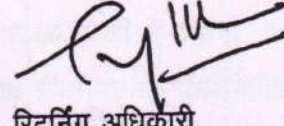 रिटर्निंग अधिकारी